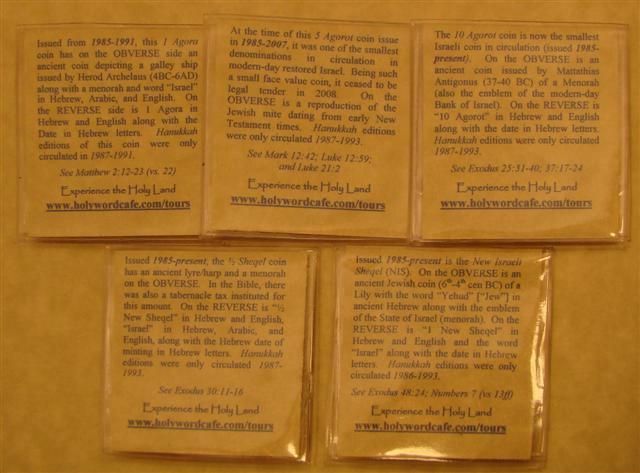 Issued from 1985-1991, this 1 Agora
coin has on the OBVERSE side an
ancient coin depicting a galley ship
issued by Herod Archelaus (4BC-6AD)
along with a menorah and word "Israel"
in Hebrew, Arabic, and English. On
the REVERSE side is 1 Agora in
Hebrew and English along with the
Date in Hebrew letters. Hanukkah
editions of this coin were only
circulated in 1987-1991.
See Matthew 2:12-23 (vs. 22)
Experience the Holy Land
www.holywordcafe.com/tours
At the time of this 5 Agorot coin issue
in 1985-2007, it was one of the smallest
denominations in circulation in
modern-day restored Israel. Being such
a small face value coin, it ceased to be
legal tender in 2008. On the
OBVERSE is a reproduction of the
Jewish mite dating from early New
Testament times. Hanukkah editions
were only circulated 1987-1993.
See Mark 12:42; Luke 12:59;
and Luke 21:2
Experience the Holy Land
www.holywordcafe.com/tours
The 10 Agorot coin is now the smallest
Israeli coin in circulation (issued 1985-
present). On the OBVERSE is an
ancient coin issued by Mattathias
Antigonus (37-40 BC) of a Menorah
(also the emblem of the modern-day
Bank of Israel). On the REVERSE is
"10 Agorot" in Hebrew and English
along with the date in Hebrew letters.
Hanukkah editions were only circulated
1987-1993.
See Exodus 25:31-40; 37:17-24
Experience the Holy Land
www.holywordcafe.com/tours
Issued 1985-present, the ½ Sheqel coin
has an ancient lyre/harp and a menorah
on the OBVERSE. In the Bible, there
was also a tabernacle tax instituted for
this amount. On the REVERSE is "½
New Sheqel" in Hebrew and English,
"Israel" in Hebrew, Arabic, and
English, along with the Hebrew date of
minting in Hebrew letters. Hanukkah
editions were only circulated 1987-
1993.
See Exodus 30:11-16
Experience the Holy Land
www.holywordcafe.com/tours
Issued 1985-present is the New Israeli
Sheqel (NIS). On the OBVERSE is an
ancient Jewish coin (6th-4th cen BC) of a
Lily with the word "Yehud" ["Jew"] in
ancient Hebrew along with the emblem
of the State of Israel (menorah). On the
REVERSE is "1 New Sheqel" in
Hebrew and English and the word
"Israel" along with the date in Hebrew
letters. Hanukkah editions were only
circulated 1986-1993.
See Exodus 48:24; Numbers 7 (vs 13ff)
Experience the Holy Land
www.holywordcafe.com/tours